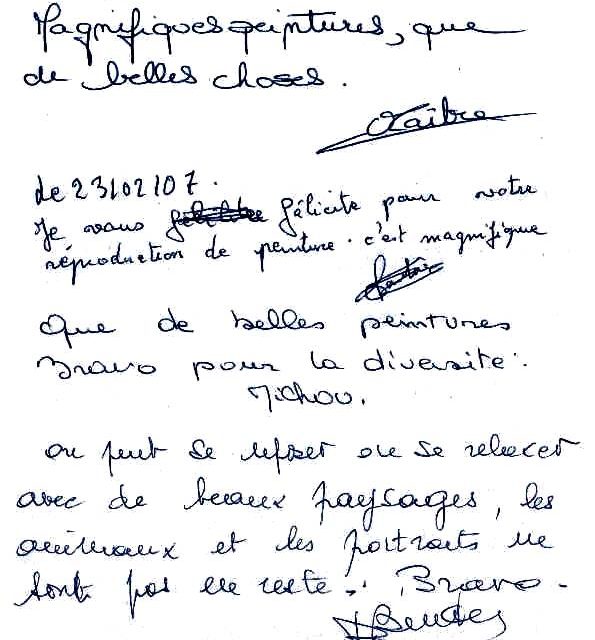 Magnifiques peintures, que
de belles choses.
de 23/02/07.
Je vous félicite pour votre
réproduction de peinture. c'est magnifique
Que de belles peintures
Bravo pour la diversité.
Michou.
on peut se reposer ou se relaxer
avec de beaux paysages, les
animaux et les portraits ne
sont pas en reste !. Bravo.